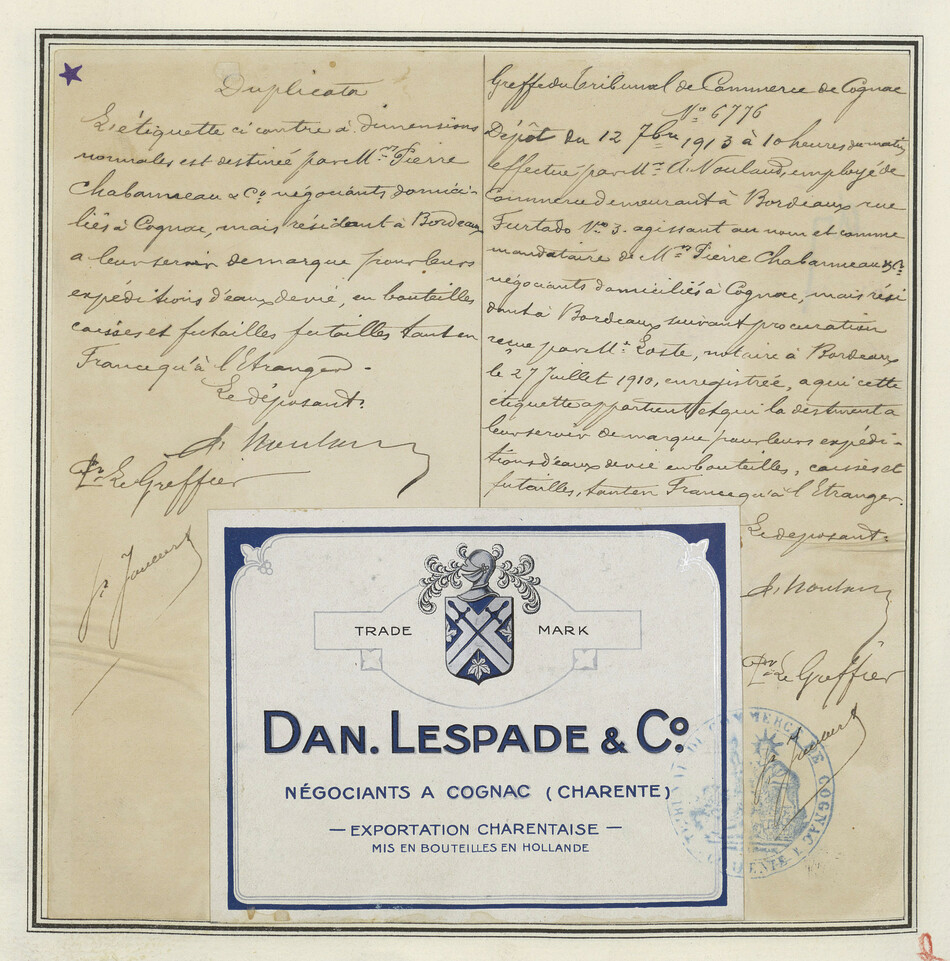 Duplicata
L'étiquette ci contre à dimensions
normales est destinée par M.rs Pierre
Chabanneau & Co négociants domici-
liés à Cognac, mais résidant à Bordeaux
a leur servir de marque pour leurs
expéditions d'eaux de vie, en bouteilles
caisses et futailles futailles tant en
France qu'à l'Etranger.
Le déposant.
Pr Le Greffier
Greffe du Tribunal de Commerce de Cognac
No 6776
Dépôt du 12 7bre 1913 à 10 heures du matin
effectué par Mr A. Noulaud, employé de
Commerce demeurant à Bordeaux rue
Furtado No 3. agissant au nom et comme
mandataire de M.rs Pierre Chabanneau & Co
négociants domiciliés à Cognac, mais rési
dant à Bordeaux suivant procuration
reçue par Me Loste, notaire à Bordeaux
le 27 Juillet 1910, enregistrée, a qui cette
étiquette appartient et qui la destinent a
leur servir de marque pour leurs expédi-
tions d'eaux de vie en bouteilles, caisses et
futailles, tant en France qu'à l'Etranger.
Le déposant.
Pr Le Greffier
TRADE MARK
DAN. LESPADE & Co.
NÉGOCIANTS A COGNAC (CHARENTE)
— EXPORTATION CHARENTAISE —
MIS EN BOUTEILLES EN HOLLANDE
TRIBUNAL DE COMMERCE DE COGNAC